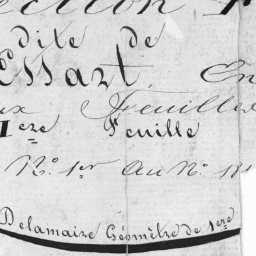 ection F
dite de
Essart. En
ux Feuilles
1ere Feuille
N.º 1er Au N.º 181
Delamaire Géomètre de 1ere